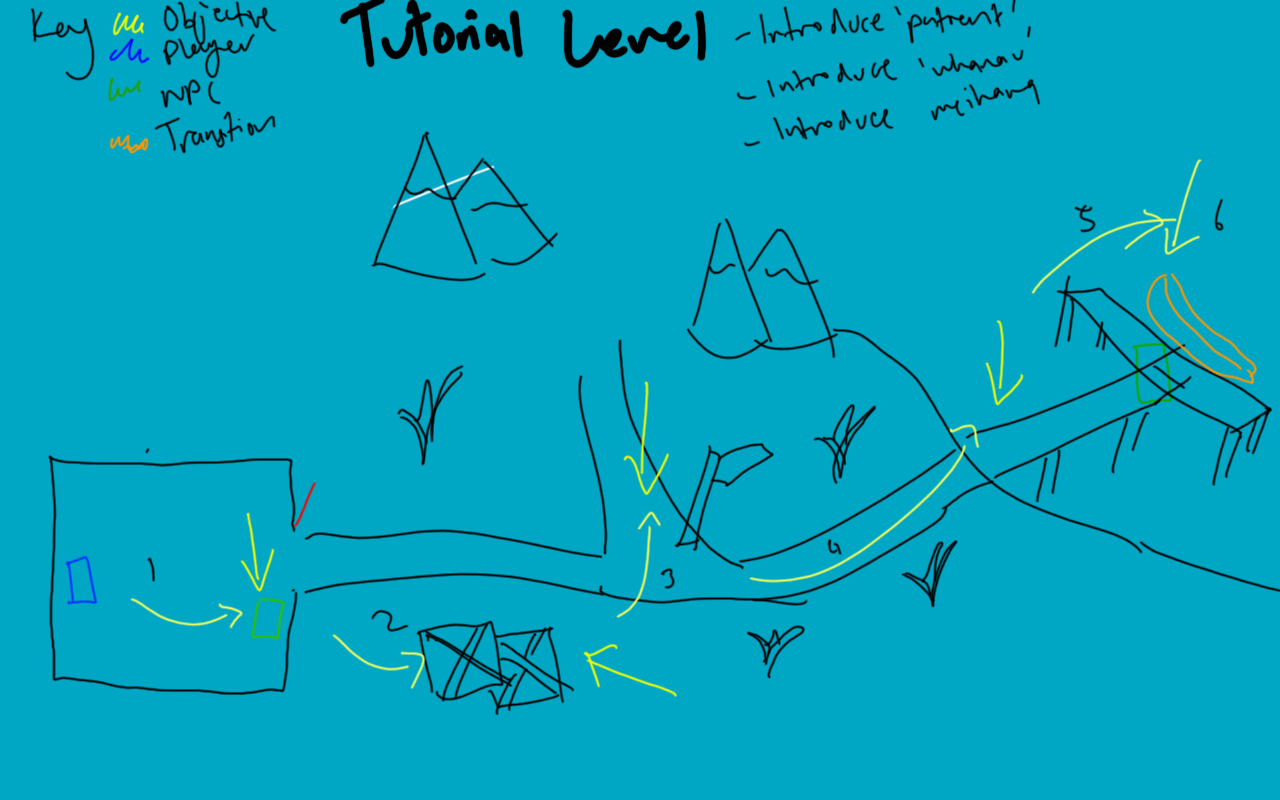 Key
Objective
Player
NPC
Transition
Tutorial Level
- Introduce 'patient'
- Introduce 'whanau'
- Introduce meihana
1
2
3
4
5
6